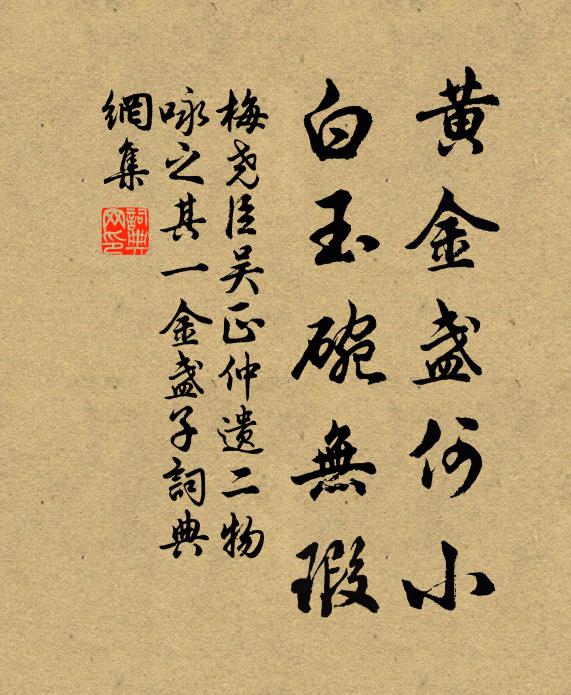 黃金盞何小
白玉碗無瑕
梅堯臣吴正仲遗二物
咏之其一金盞子詞典
網集
詞典
网印